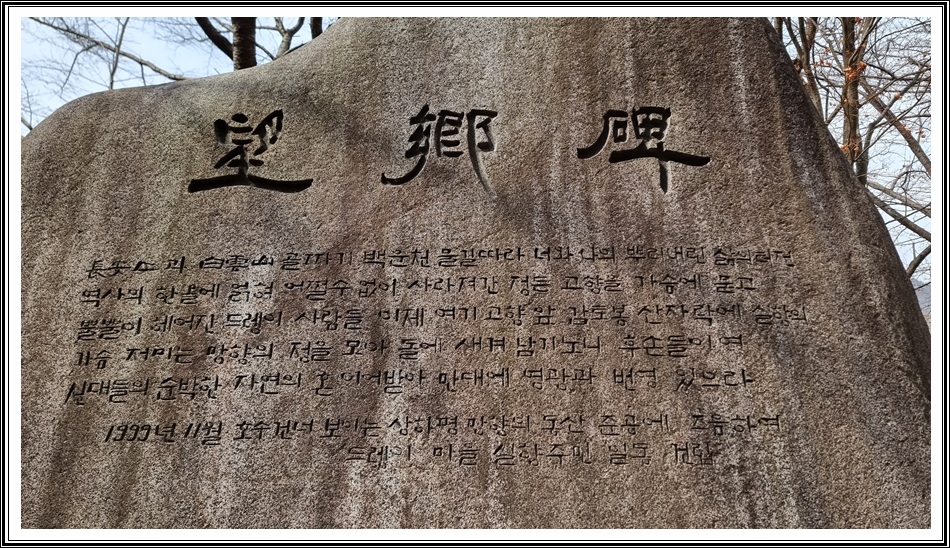 望鄕碑
長安山과 白雲山 끝자기 백운천 물길따라 너와 나의 뿌리내린 삶의터전
역사의 한밭에 얽혀 어쩔수 없이 사라져간 정든 고향을 가슴에 묻고
뿔뿔이 헤어진 드렝이 사람들 이제 여기 고향 앞 감도봉 산자락에 실향의
가슴 저미는 망향의 정을 모아 돌에 새겨 남기노니 후손들이여
선대들의 순박한 자연의 혼 이어받아 만대에 영광과 번영 있으라
1999년 11월 호수건너 보이는 상하평 망향의 동산 준공에 즈음하여
드렝이 마을 실향주민 일동 건립